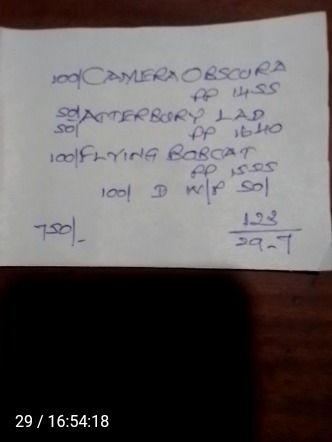 100/ CAMERA OBSCURA
PP 1455
50/ ATTERBURY LAD
50/ PP 1640
100/ FLYING BOBCAT
PP 1555
100/ D W/P 50/
750/-
123
29-7
29 / 16:54:18